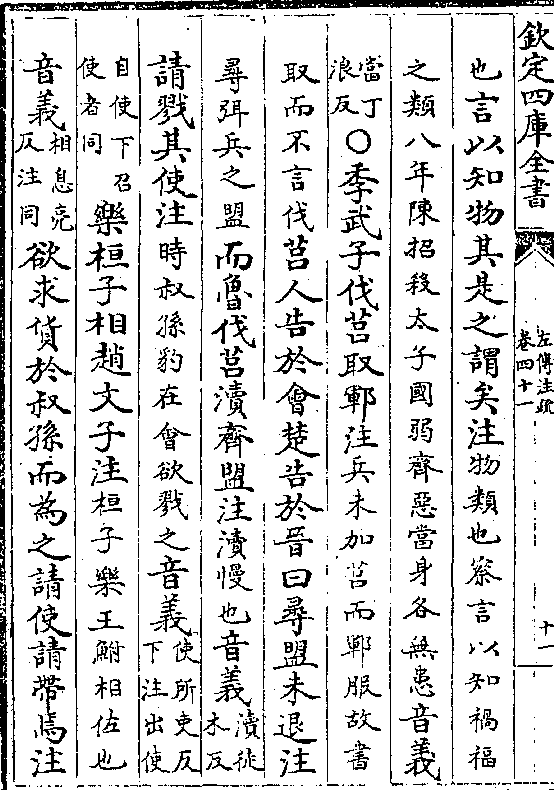 欽定四庫全書
左傳注疏
卷四十一
十一
也言以知物其是之謂矣注物類也察言以知禍福
之類八年陳招殺太子國弱齊惡當身各無患音義
當丁
浪反
○季武子伐莒取鄆注兵未加莒而鄆服故書
取而不言伐莒人告於會楚告於晉曰尋盟未退注
尋弭兵之盟而魯伐莒瀆齊盟注瀆慢也音義
瀆徒
木反
請戮其使注時叔孫豹在會欲戮之音義
使所吏反
下注出使
自使下召
使者同
樂桓子相趙文子注桓子樂王鮒相佐也
音義
相息亮
反注同
欲求貨於叔孫而為之請使請帶焉注